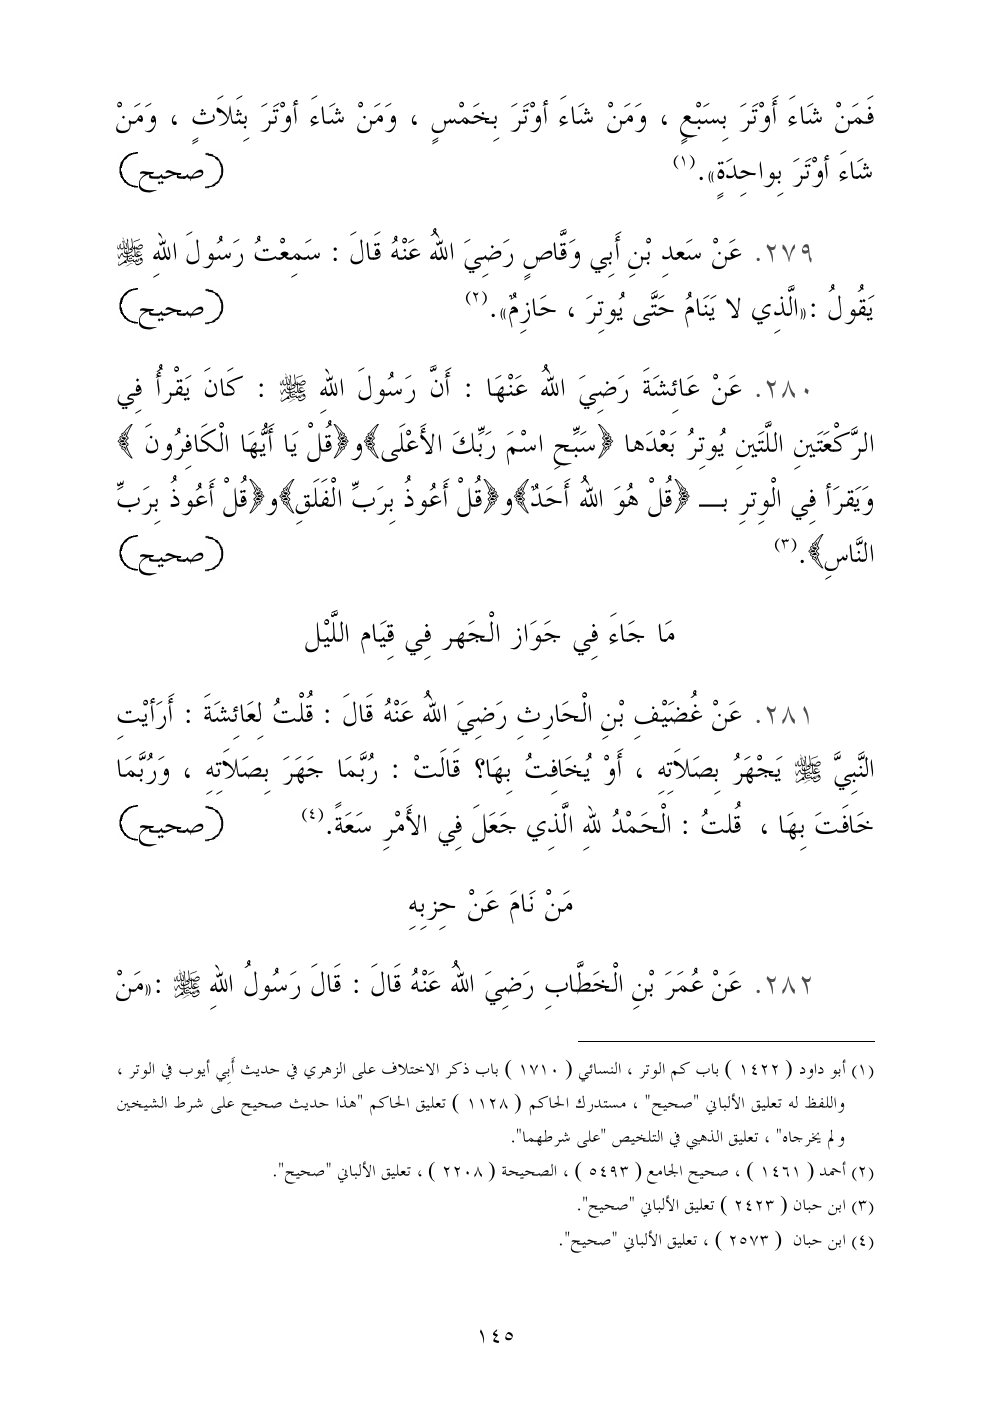 فَمَنْ شَاءَ أَوْتَرَ بِسَبْعٍ ، وَمَنْ شَاءَ أوْتَرَ بِخَمْسٍ ، وَمَنْ شَاءَ أوْتَرَ بِثَلاَثٍ ، وَمَنْ
شَاءَ أوْتَرَ بِواحِدَةٍ».(١) (صحيح)
٢٧٩. عَنْ سَعدِ بْنِ أَبِي وَقَّاصٍ رَضِيَ اللهُ عَنْهُ قَالَ : سَمِعْتُ رَسُولَ اللهِ ﷺ
يَقُولُ :«الَّذِي لا يَنَامُ حَتَّى يُوتِرَ ، حَازِمٌ».(٢) (صحيح)
٢٨٠. عَنْ عَائِشَةَ رَضِيَ اللهُ عَنْهَا : أَنَّ رَسُولَ اللهِ ﷺ : كَانَ يَقْرأُ فِي
الرَّكْعَتَينِ اللَّتَينِ يُوتِرُ بَعْدَها ﴿سَبِّحِ اسْمَ رَبِّكَ الأَعْلَى﴾و﴿قُلْ يَا أَيُّهَا الْكَافِرُونَ ﴾
وَيَقرَأ فِي الْوِترِ بـــ ﴿قُلْ هُوَ اللهُ أَحَدٌ﴾و﴿قُلْ أَعُوذُ بِرَبِّ الْفَلَقِ﴾و﴿قُلْ أَعُوذُ بِرَبِّ
النَّاسِ﴾.(٣) (صحيح)
مَا جَاءَ فِي جَوَاز الْجَهر فِي قِيَام اللَّيْل
٢٨١. عَنْ غُضَيْفِ بْنِ الْحَارِثِ رَضِيَ اللهُ عَنْهُ قَالَ : قُلْتُ لِعَائِشَةَ : أَرَأيْتِ
النَّبِيَّ ﷺ يَجْهَرُ بِصَلاَتِهِ ، أَوْ يُخَافِتُ بِهَا؟ قَالَتْ : رُبَّمَا جَهَرَ بِصَلاَتِهِ ، وَرُبَّمَا
خَافَتَ بِهَا ، قُلتُ : الْحَمْدُ لِلهِ الَّذِي جَعَلَ فِي الأَمْرِ سَعَةً.(٤) (صحيح)
مَنْ نَامَ عَنْ حِزبِهِ
٢٨٢. عَنْ عُمَرَ بْنِ الْخَطَّابِ رَضِيَ اللهُ عَنْهُ قَالَ : قَالَ رَسُولُ اللهِ ﷺ :«مَنْ
(١) أبو داود ( ١٤٢٢ ) باب كم الوتر ، النسائي ( ١٧١٠ ) باب ذكر الاختلاف على الزهري في حديث أَبِي أيوب في الوتر ،
واللفظ له تعليق الألباني "صحيح" ، مستدرك الحاكم ( ١١٢٨ ) تعليق الحاكم "هذا حديث صحيح على شرط الشيخين
و لم يخرجاه" ، تعليق الذهبي في التلخيص "على شرطهما".
(٢) أحمد ( ١٤٦١ ) ، صحيح الجامع ( ٥٤٩٣ ) ، الصحيحة ( ٢٢٠٨ ) ، تعليق الألباني "صحيح".
(٣) ابن حبان ( ٢٤٢٣ ) تعليق الألباني "صحيح".
(٤) ابن حبان ( ٢٥٧٣ ) ، تعليق الألباني "صحيح".
١٤٥